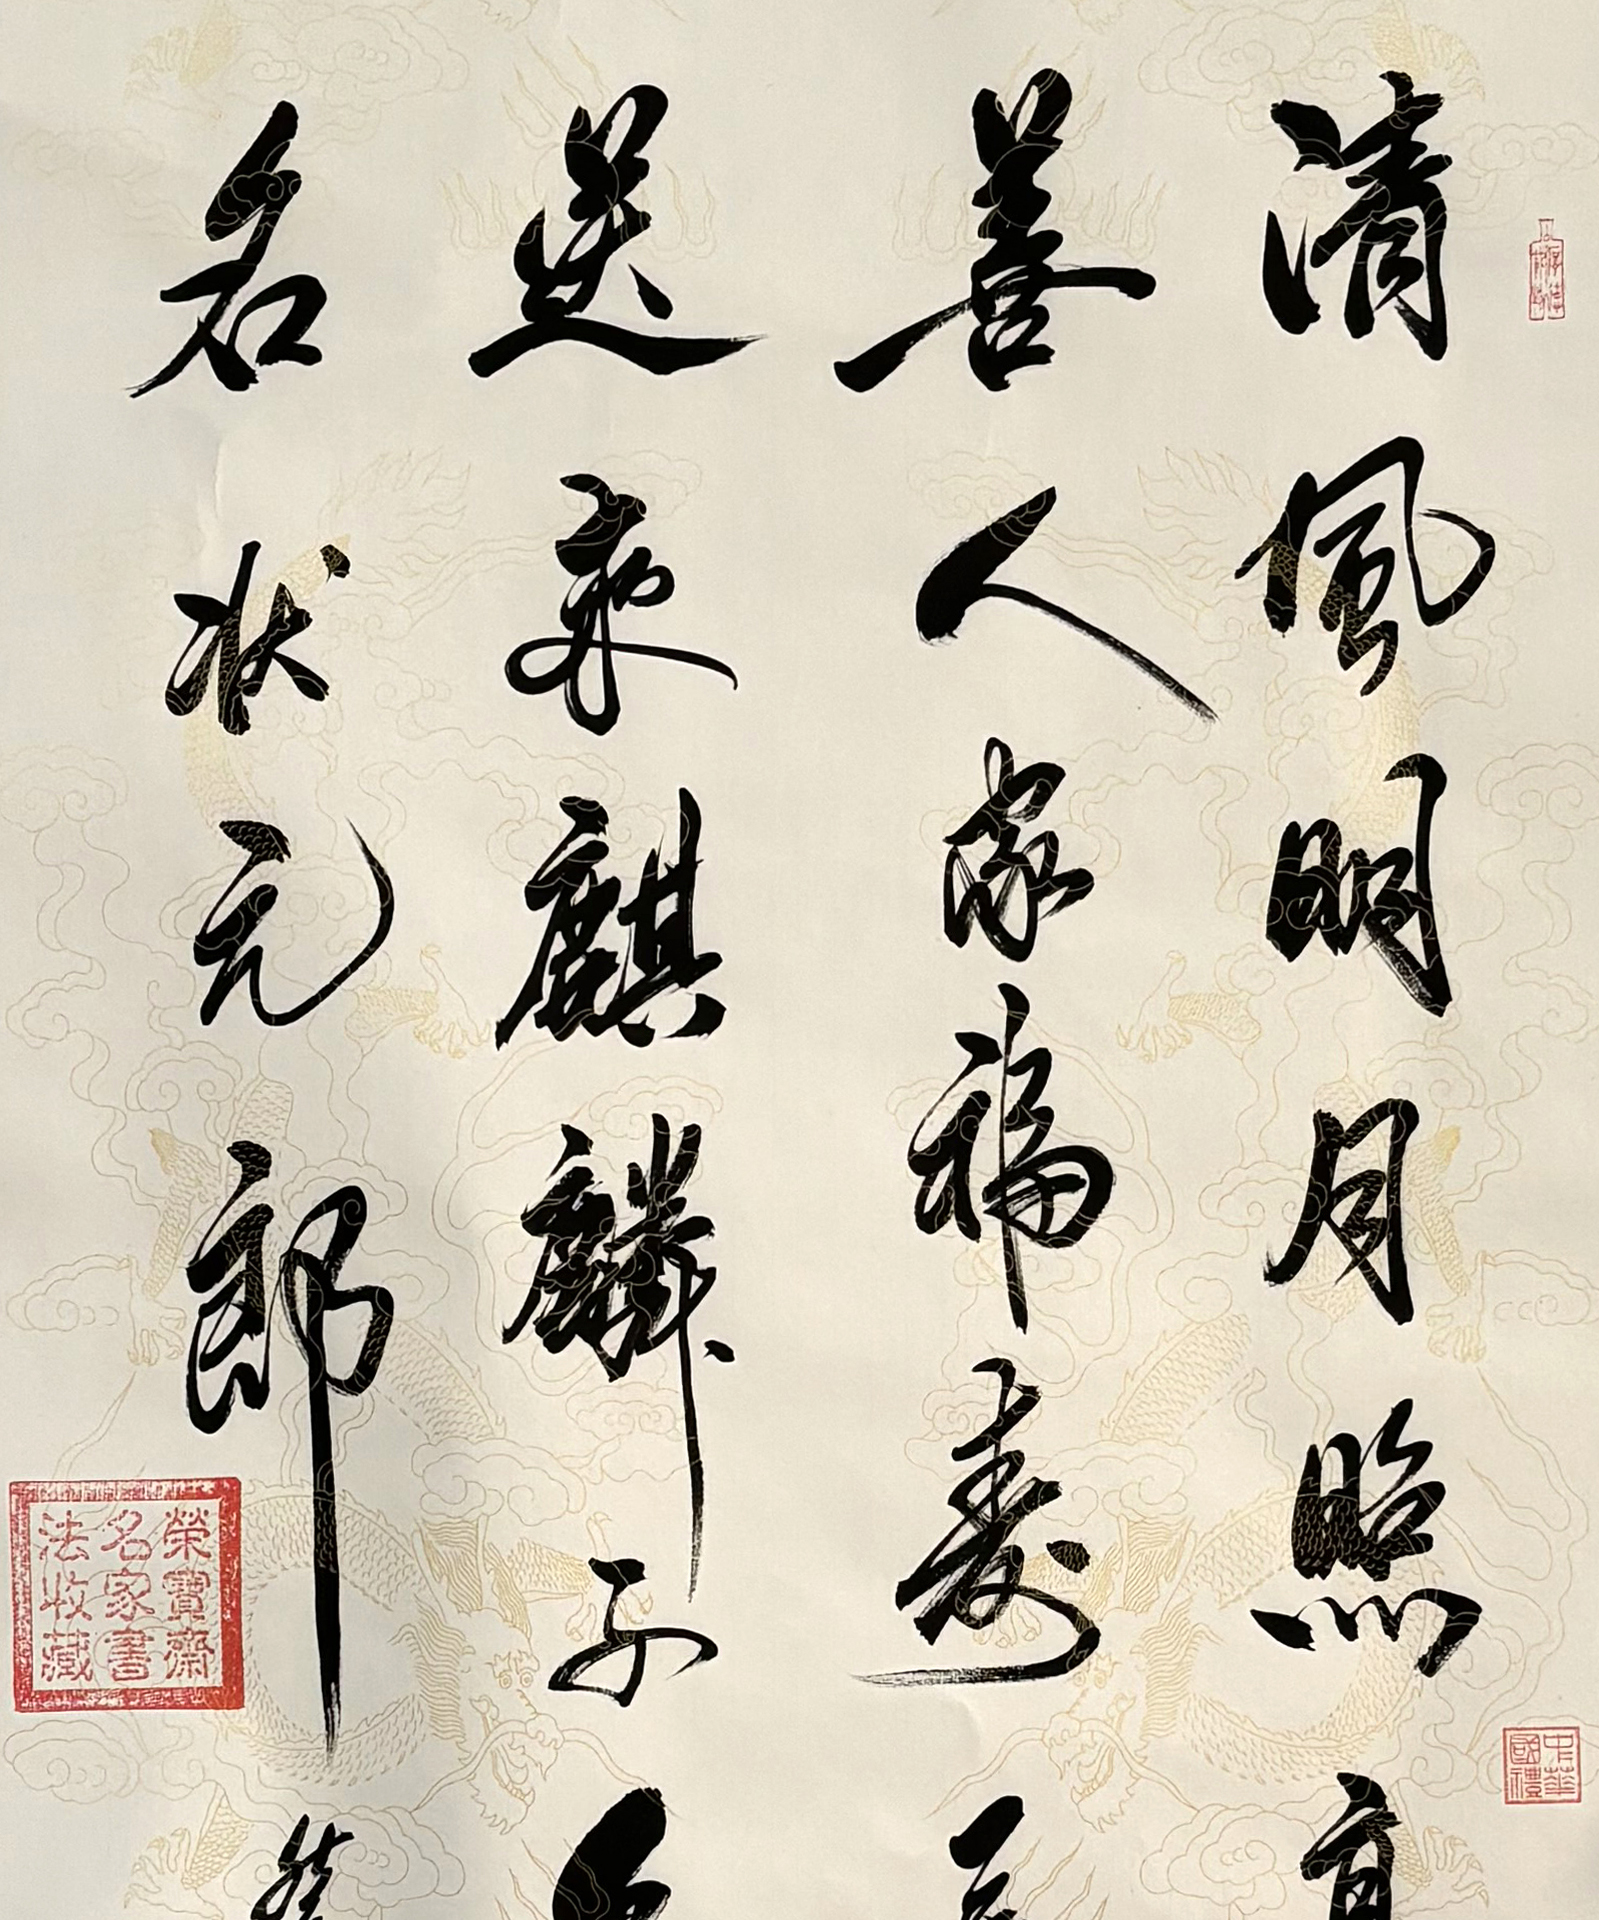 清風明月照高
善人家福壽
送來麒麟子
名状元郎
榮寶齋
名家書
法收藏
中華
國禮